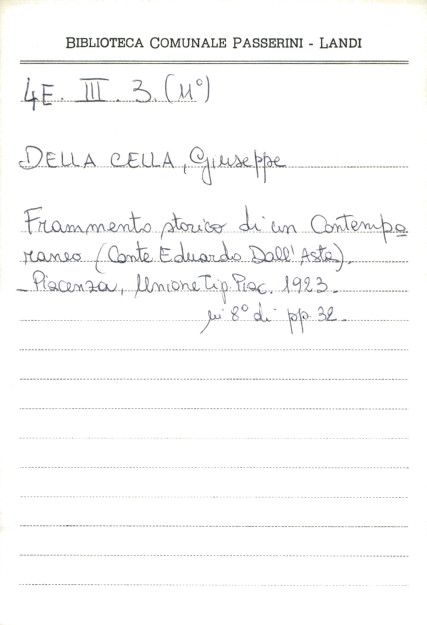 BIBLIOTECA COMUNALE PASSERINI - LANDI
4E. III. 3. (11°)
DELLA CELLA, Giuseppe
Frammento storico di un Contempo
raneo (Conte Eduardo Dall'Asta).
- Piacenza, Unione Tip. Piac. 1923.
in 8° di pp. 32.